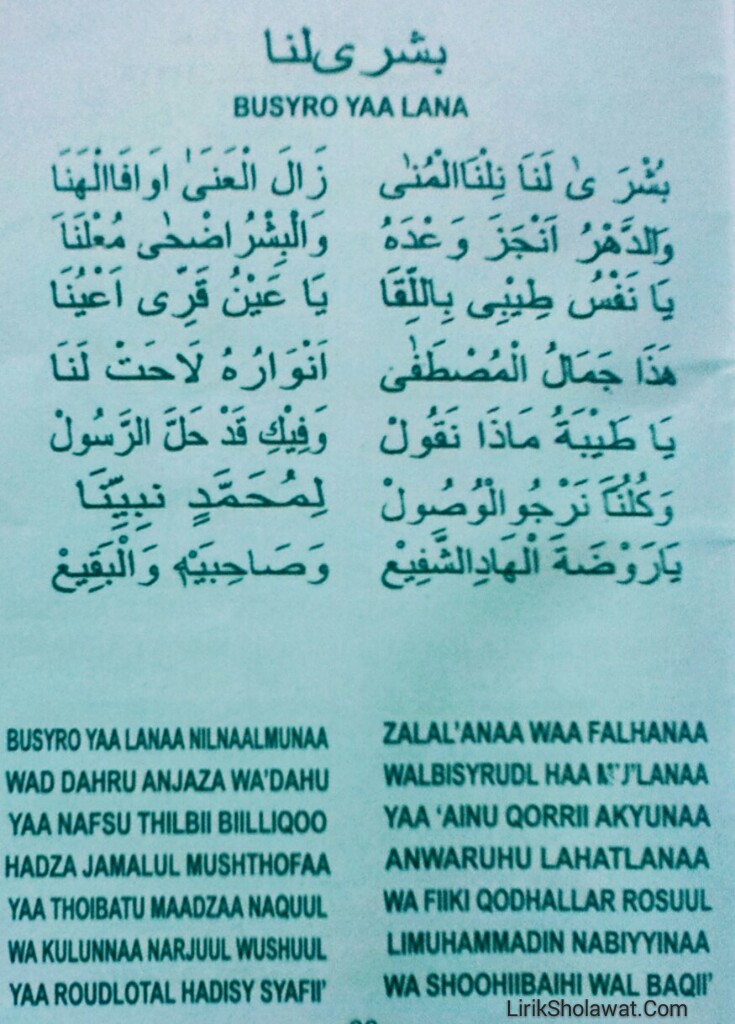 بشر ى لنا
BUSYRO YAA LANA
بُشْرَ ىٰ لَنَا نِلْنَاالْمُنٰى زَالَ الْعَنَىٰ اوَافَاالْهَنَا
وَالدَّهْرُ اَنْجَزَ وَعْدَهُ وَالْبِشْرُاضْحٰى مُعْلَنَا
يَا نَفْسُ طِيْبِى بِاللِّقَا يَا عَيْنُ قَرِّى اَعْيُنَا
هَذَا جَمَالُ الْمُصْطَفٰى اَنْوَارُهُ لَاحَتْ لَنَا
يَا طَيْبَةُ مَاذَا نَقُولْ وَفِيْكِ قَدْ حَلَّ الرَّسُولْ
وَكُلُنَّا نَرْجُوالْوُصُولْ لِمُحَمَّدٍ نبِيِّنَا
يَارَوْضَةَ الْهَادِالشَّفِيْعْ وَصَاحِبَيْهِ وَالْبَقِيعْ
BUSYRO YAA LANAA NILNAALMUNAA ZALAL'ANAA WAA FALHANAA
WAD DAHRU ANJAZA WA'DAHU WALBISYRUDL HAA
YAA NAFSU THILBII BIILLIQOO YAA 'AINU QORRII AKYUNAA
HADZA JAMALUL MUSHTHOFAA ANWARUHU LAHATLANAA
YAA THOIBATU MAADZAA NAQUUL WA FIIKI QODHALLAR ROSUUL
WA KULUNNAA NARJUUL WUSHUUL LIMUHAMMADIN NABIYYINAA
YAA ROUDLOTAL HADISY SYAFII' WA SHOOHIIBAIHI WAL BAQII'
LirikSholawat.Com